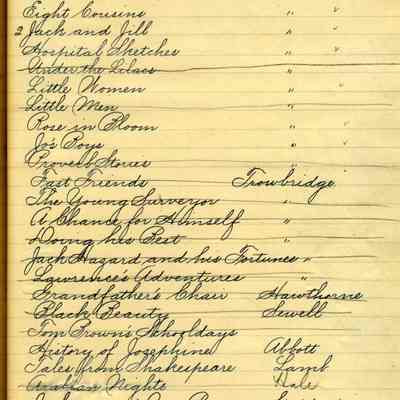 Eight Cousins " "
2 Jack and Jill " "
Hospital Sketches " "
Under the Lilacs " "
Little Women " "
Little Men "
Rose in Bloom " "
Jo's Boys " "
Proverb Stories " "
Fast Friends Trowbridge
The Young Surveyor "
A Chance for Himself "
Doing his Best "
Jack Hazard and his Fortunes "
Lawrence's Adventures "
Grandfather's Chair Hawthorne
Black Beauty Sewell
Tom Brown's Schooldays
History of Josephine Abbott
Tales from Shakespeare Lamb
Arabian Nights Hale